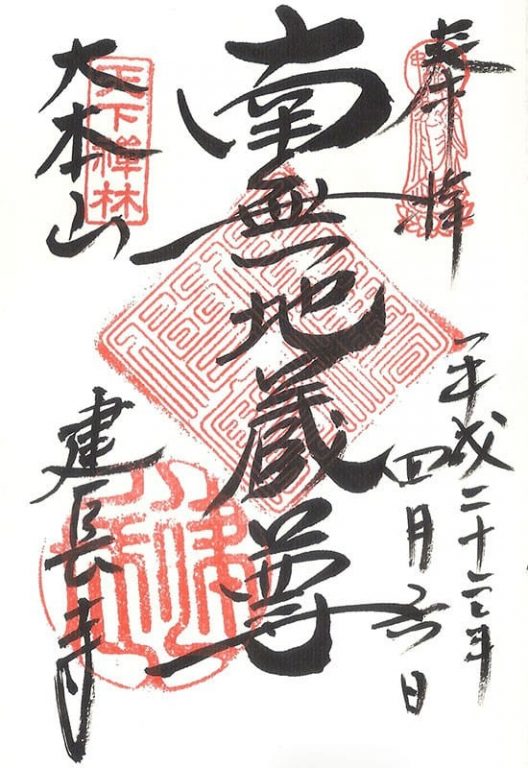 奉拝
平成二十年
四月六日
南無地蔵尊
天下禪林
大本山
建長寺